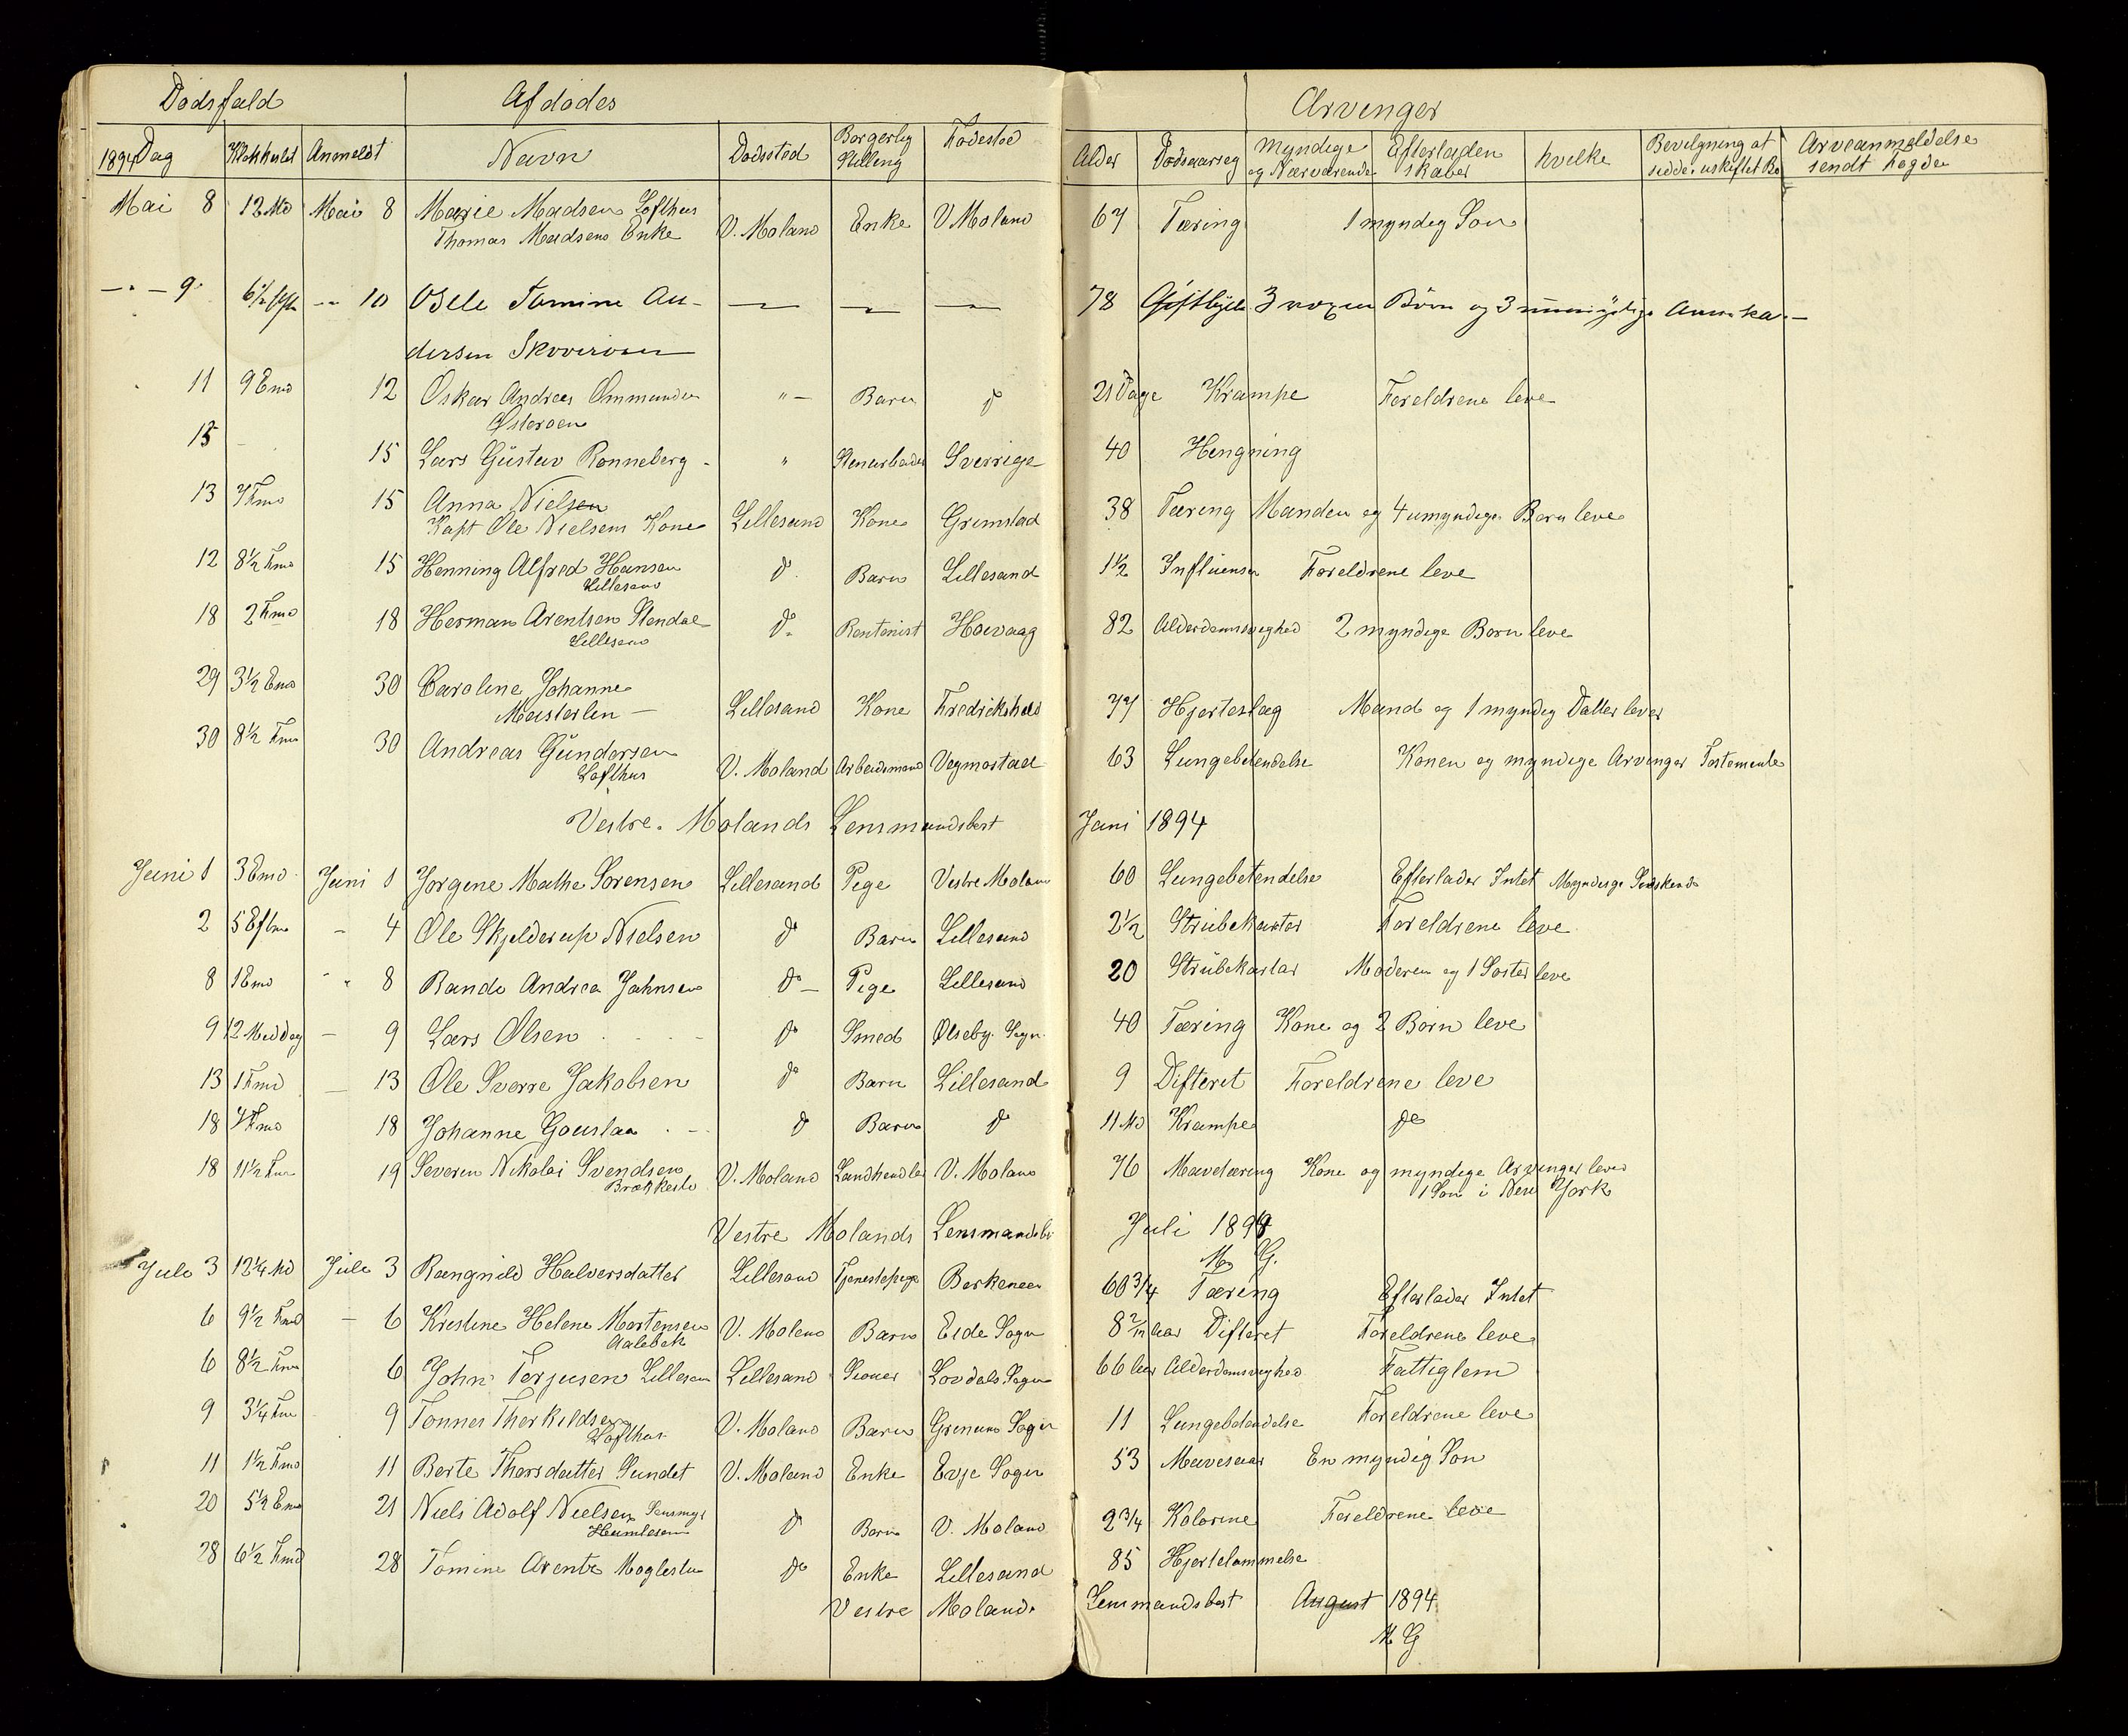 Dødsfald Afdødes Arvinger
1894 Dag Klokkeslet Anmeldt Navn Dødssted Borgerlig Stilling Fødested Alder Dødsaarsag Myndige og Nærværende Efterladenskaber hvilke Bevilgning at sidde i uskiftet Bo Arveanmeldelse sendt
Mai 8 12 Md Mai 8 Marie Madsen Lofthus V. Moland Enke V Moland 67 Tæring 1 myndig Søn
Thomas Madsens Enke
— " — 9 6½ — " 10 Tomine An- — " — — " — — " — 78 3 voxen Børn og 3
dersen
11 9 Emd 12 Oskar Andreas Ommundsen " — Barn do 21 Dage Krampe Foreldrene leve
Østerøen
15 15 Lars Güstav Rønneberg - " Stenarbeider Sverrige 40 Hengning
13 7 Fmd 15 Anna Nielsen
Kapt Ole Nielsens Kone Lillesand Kone Grimstad 38 Tæring Manden og 4 umyndige Børn leve
12 8½ Fmd 15 Henning Alfred Hansen do Barn Lillesand 1½ Influensa Foreldrene leve
Lillesand
18 2 Fmd 18 Herman Arentsen Stendal do Rentenist Høvaag 82 Alderdomsvaghed 2 myndige Børn leve
Lillesand
29 3½ Emd 30 Caroline Johanne
Masterlin — Lillesand Kone Fredrikshald 77 Hjerteslag Mand og 1 myndig Datter lever
30 8½ Fmd 30 Andreas Gündersen
Lofthus V. Moland Arbeidsmand Vegmostad 63 Lungebetendelse Konen og myndige Arvinger Testomente
Vestre Molands Lensmandsbest Juni 1894
Juni 1 3 Emd Juni 1 Jørgine Mathe Sørensen Lillesand Pige Vestre Moland 60 Lungebetendelse Efterlader Intet Myndige Sødskende
2 5 Eftm - 4 Ole Skjelderup Nielsen do Barn Lillesand 2½ Strübekatar Foreldrene leve
8 1 Emd " 8 Rande Andrea Jahnsen do — Pige Lillesand 20 Strübekatar Moderen og 1 Søster leve
9 12 Middag — 9 Lars Olsen do Smed Ølseby Sogn 40 Tæring Kone og 2 Børn leve
13 1 Fmd — 13 Ole Sverre Jakobsen do Barn Lillesand 9 Difterit Foreldrene leve
18 4 Fmd 18 Johanne Gouslaa do Barn do 11 Md Krampe do
18 11½ Fm 19 Severin Nikolai Svendsen V. Moland Landhandler V. Moland 76 Mavetæring Kone og myndige Arvinger lever
Brækkestø 1 Søn i New York
Vestre Molands Lensmandsb. Juli 1894
M G.
Jule 3 12¼ Md Jule 3 Rangnild Halversdatter Lillesand Tjenestepige Berkeneen 60 3/4 Tæring Efterlader Intet
6 9½ Fmd - 6 Kristine Helene Mortensen V. Moland Barn Eide Sogn 8 2/12 Aar Difterit Foreldrene leve
Aalebek
6 8½ Fm 6 John Terjusen Lillesan Lillesand Løvdals Sogn 66 Aar Alderdomsvaghed Fattiglem
9 3¼ Fm 9 Tønnes Therkildsen V. Moland Barn 11 Lungebetendelse Foreldrene leve
Lofthus
11 1½ Fmd 11 Berte Thorsdatter Sundet V. Moland Enke Evje Sogn 53 Mavesaar En myndig Søn
20 5½ Emd 21 Niels Adolf Nielsen do Barn V. Moland 2¾ Kolorine Foreldrene leve
28 6½ Fmd 28 Tomine Arente Moglestu do Enke Lillesand 85 Hjertelammelse
Vestre Molands Lensmandsbest August 1894
M G